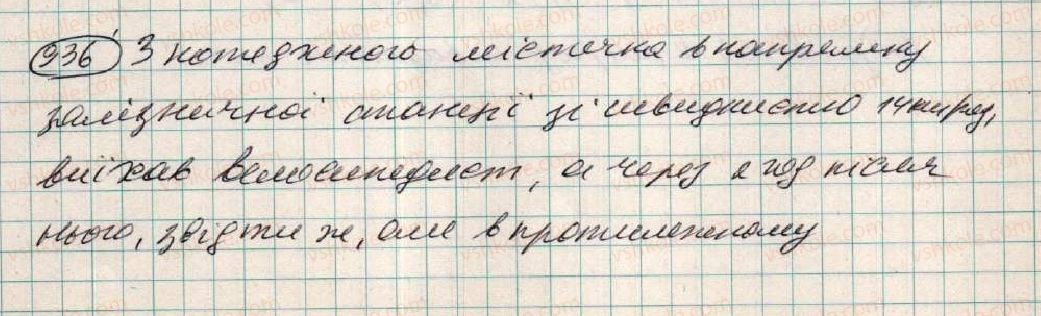 936 З котеджного містечка в напрямку
залізничної станції зі швидкістю 14 км/год,
виїхав велосипедист, а через 2 год після
нього, звідти ж, але в протилежному